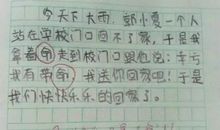 今天下大雨，郭小爱一个人
站在学校门口回不了家，于是我
拿着命走到校门口跟他说：幸亏
我有革命，我送你回家吧！于是
我们快快乐乐的回家了。